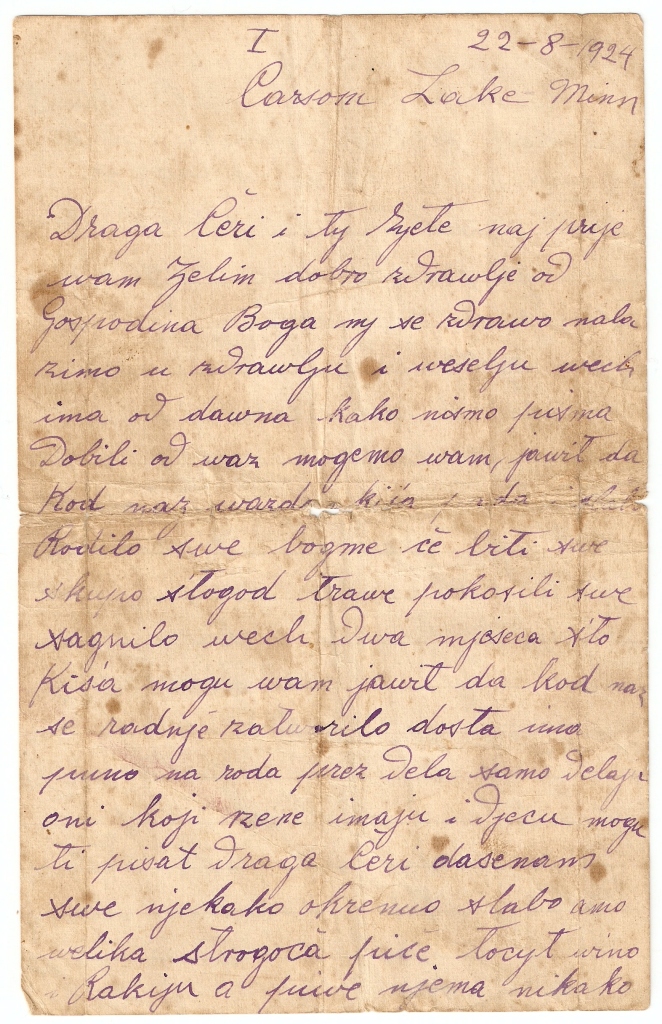 I
22-8-1924
Carsom Lake Minn
Draga Čeri i ty Zjete naj prije
wam Zelim dobro zdrawlje od
Gospodina Boga mj se zdrawo nala
zimo u zdrawlju i weselju wech
ima od dawna kako nismo pisma
Dobili od waz mogemo wam, jawit da
Kod naz
Rodilo swe bogme če biti swe
skupo štogod trawe pokosili swe
sagnilo wech dwa mjeseca što
Kiša mogu wam jawit da kod naz
se radnje zatworilo dosta ima
puno na roda prez dela samo delaju
oni koji zene imaju i djecu mogu
ti pisat draga Čeri dasenam
swe njekako okrenuo slabo amo
welika strogoča piče točyt wino
i Rakiju a piwe njema nikako